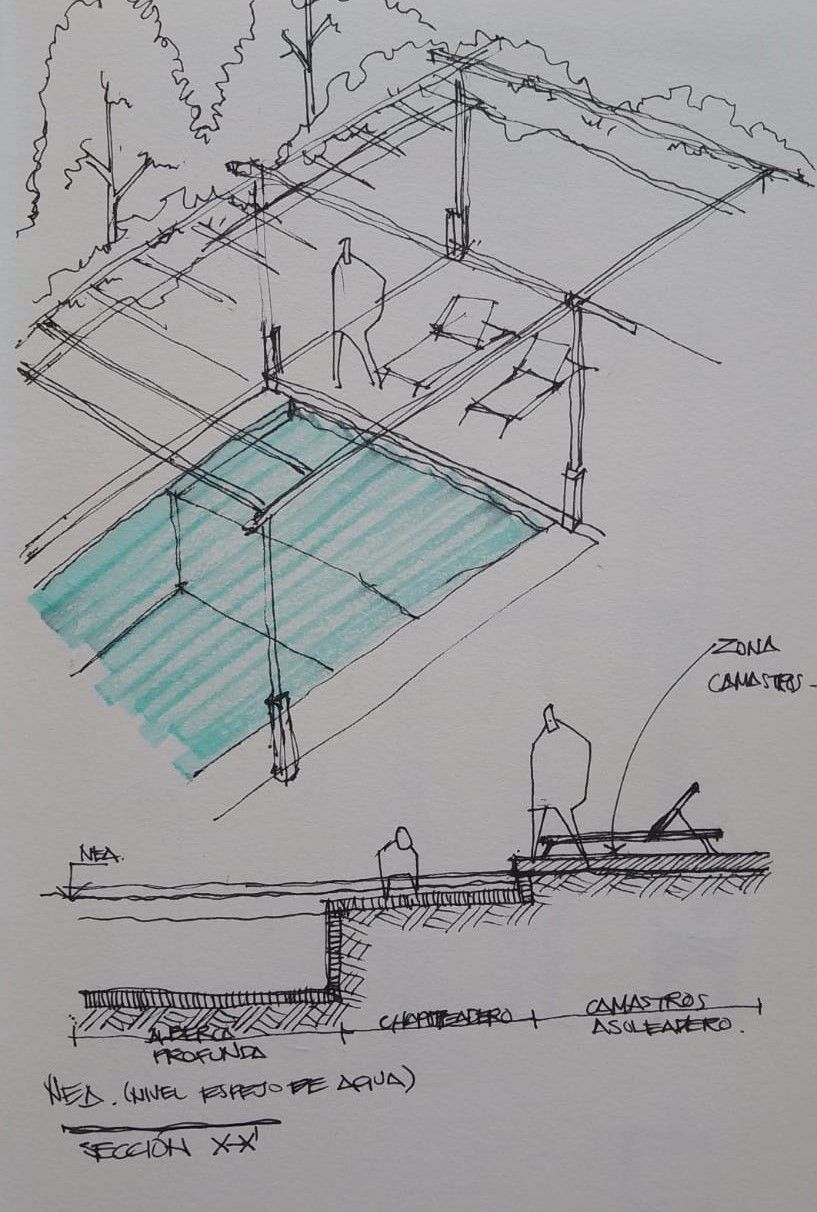 ZONA
CAMASTROS
NEA.
ALBERCA
PROFUNDA
CHAPOTEADERO
CAMASTROS
ASOLEADERO.
NEA. (NIVEL ESPEJO DE AGUA)
SECCIÓN X-X'